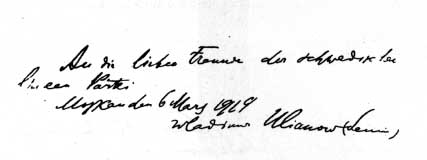 An die lieben Freunde der schwedischen
linken Partei
Moskau den 6 März 1919
Wladimir Ulianow (Lenin)